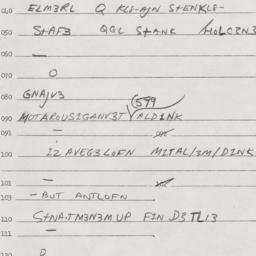 040 ELM3RL Q KLS-AJN STENKLS-
050 STAF3 QGL STANK /HOLC3N3
060 —
070 O
080 GNAJV3
(599
090 MOTAROUS2GANV3T VALD1NK
091 —
100 12 AVEG3LOFN MITAL/3M/D1NK
101 —
103 —BUT ANTLOFN
110 STNA.TM3N3M UP FIN D3TL13
111 —
120 O